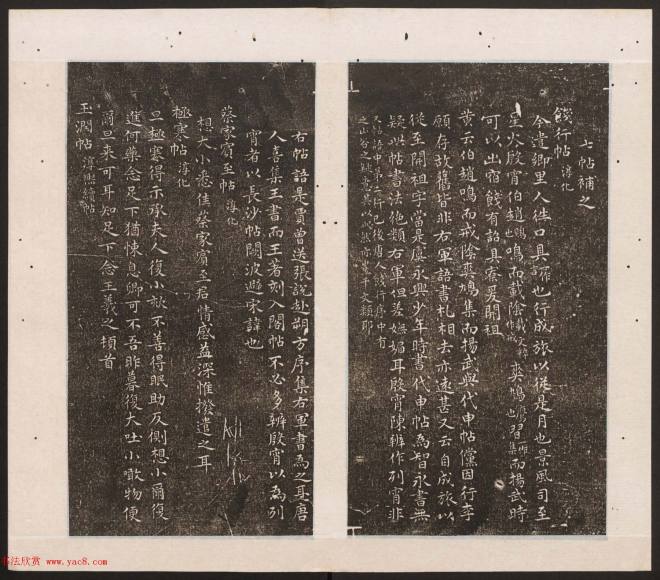 七帖補之
餞行帖 淳化
今遣鄉里人往口具 也行成旅以從是月也景風司至
星火殷宵伯趙 鳴而載陰 爽鳩 習 集而揚武時
可以出宿餞有詔具寮爰開祖
黃云伯趙鳴而戒陰爽鳩集而揚武與代申帖儻因行李
願存故舊皆非右軍語書札相去亦遠甚又云自成旅以
從至開祖字當是虞永興少年時書代申帖為智永書無
疑此帖書法絕類右軍但差嫵媚耳殷宵陳辨作列宵非
右帖語是賈曾送張說赴朔方序集右軍書為之耳唐
人喜集王書而王著刻入閣帖不必多辨殷宵以為列
宵者以長沙帖闕波避宋諱也
蔡家賓至帖 淳化
想大小悉佳蔡家賓至君情感益深惟撥遣之耳
極寒帖 淳化
旦極寒得示承夫人復小欬不善得眠助反側想小爾復
進何藥念足下猶悚息卿可不吾昨暮復大吐小噉物便
爾旦來可耳知足下念王羲之頓首
玉潤帖 淳熙續帖
书法欣赏 www.yac8.com